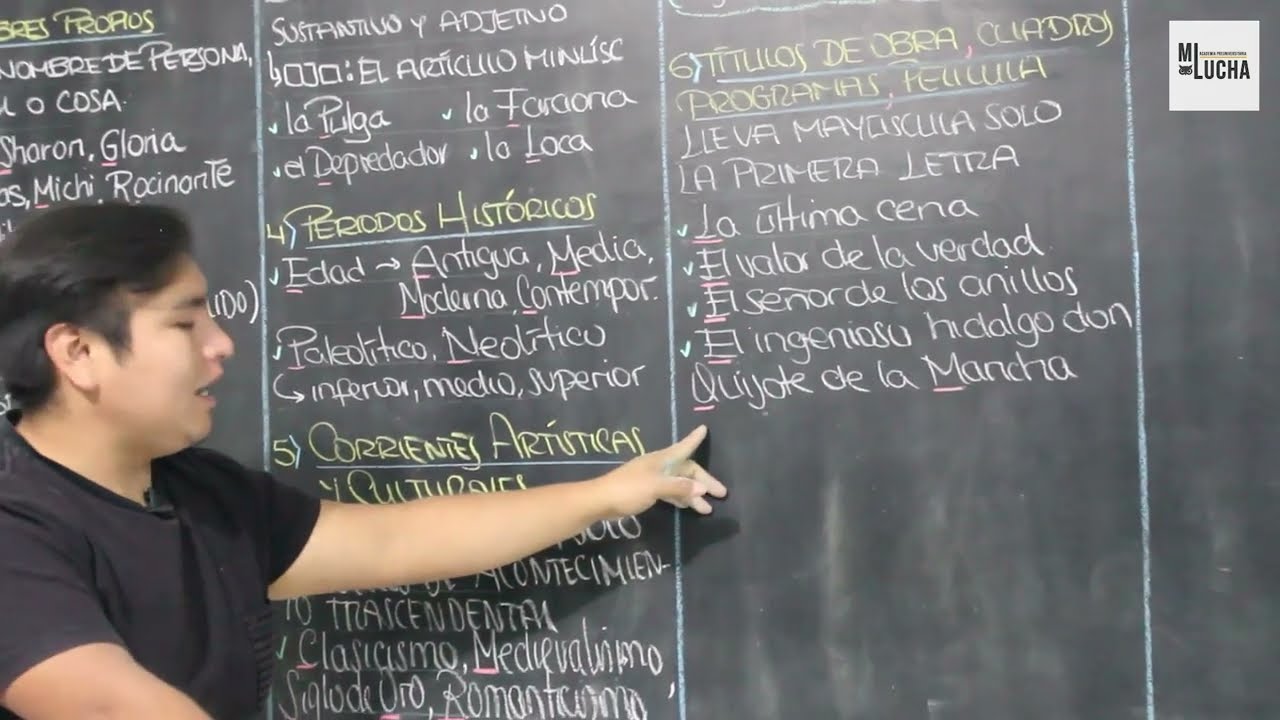 BRES PROPIOS
NOMBRE DE PERSONA,
O COSA.
Sharon, Gloria
as, Michi, Rocinante
IDO)
SUSTANTIVO Y ADJETIVO
↳□□□: EL ARTÍCULO MINÚSC
✓la Pulga ✓la Faraona
✓el Depredador ✓la Loca
4) PERIODOS HISTÓRICOS
✓Edad → Antigua, Media,
Moderna, Contempor.
✓Paleolítico, Neolítico
↳ inferior, medio, superior
5) CORRIENTES ARTÍSTICAS
Y CULTURALES
ACONTECIMIEN-
TO TRASCENDENTAL
✓ Clasicismo, Medievalismo
Siglo de Oro, Romanticismo,
6) TÍTULOS DE OBRA, CUADROS
PROGRAMAS, PELÍCULA
LLEVA MAYÚSCULA SOLO
LA PRIMERA LETRA
✓La última cena
✓El valor de la verdad
✓El señor de los anillos
✓El ingenioso hidalgo don
Quijote de la Mancha
ACADEMIA PREUNIVERSITARIA
MI
LUCHA